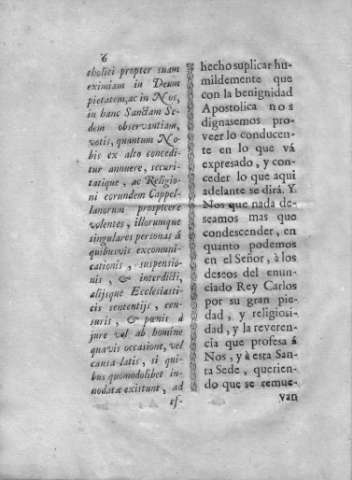 6
tholici propter suam
eximiam in Deum
pietatem, ac in Nos,
in hanc Sanctam Se-
dem observantiam,
votis, quantum No-
bis ex alto concedi-
tur annuere, securi-
tatique, ac Religio-
ni eorundem Cappel-
lanorum prospicere
volentes, illorumque
singulares personas á
quibusvis excomuni-
cationis, suspensio-
nis, & interdicti,
alijsque Ecclesiasti-
cis sententijs, cen-
suris, & pœnis á
jure vel ab homine
quavis occasione, vel
causa latis, si qui-
bus quomodolibet in-
nodatæ existunt, ad
ef-
hecho suplicar hu-
mildemente que
con la benignidad
Apostolica nos
dignasemos pro-
veer lo conducen-
te en lo que vá
expresado, y con-
ceder lo que aqui
adelante se dirá. Y
Nos que nada de-
seamos mas que
condescender, en
quanto podemos
en el Señor, à los
deseos del enun-
ciado Rey Carlos
por su gran pie-
dad, y religiosi-
dad, y la reveren-
cia que profesa á
Nos, y à esta San-
ta Sede, querien-
do que se remue-
van